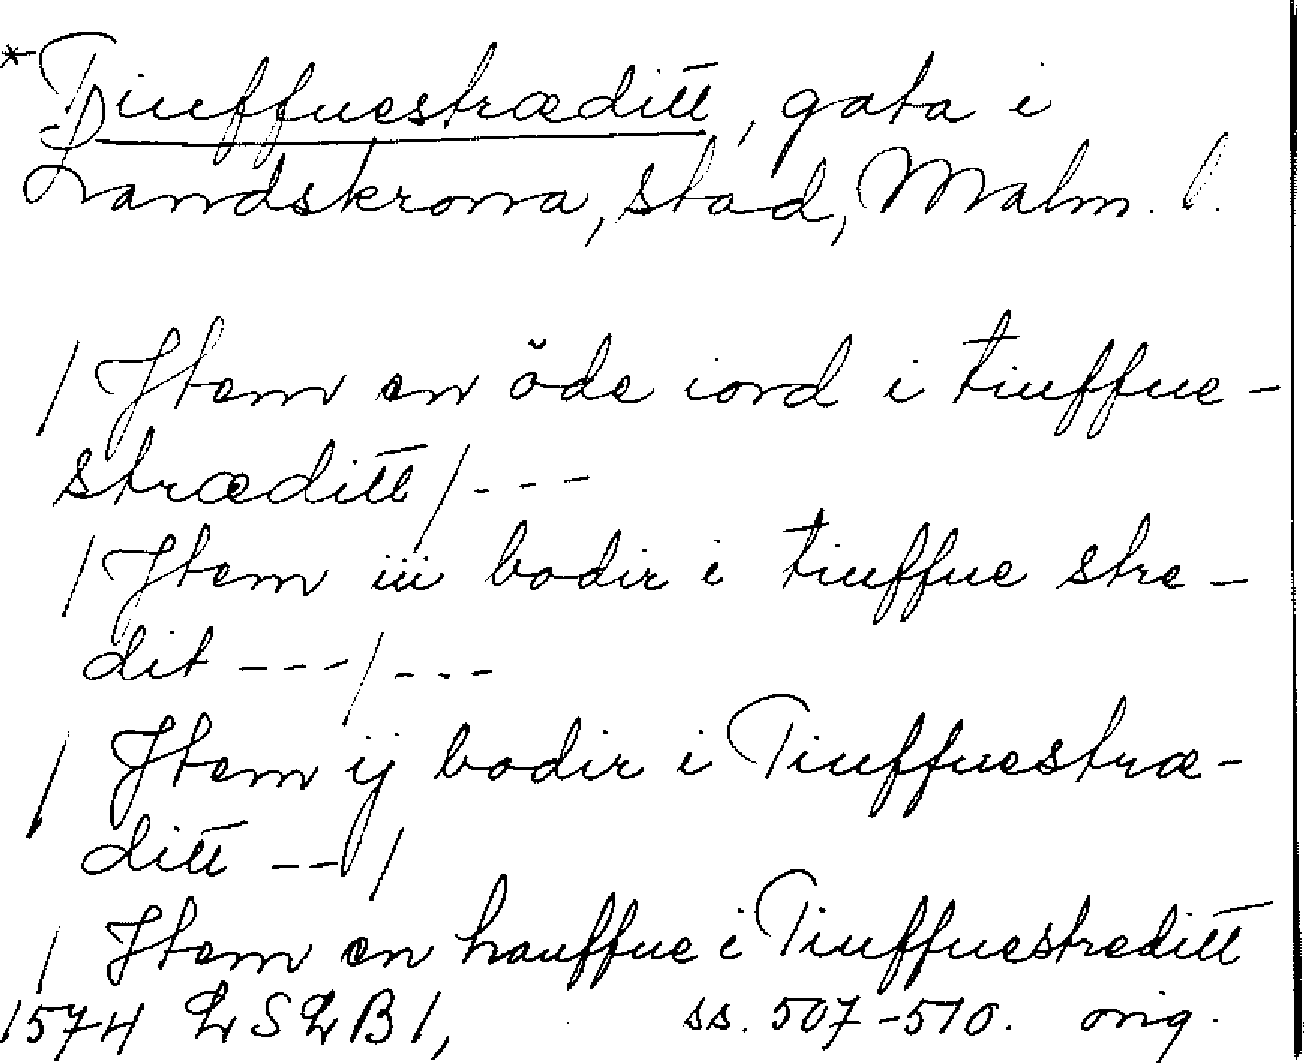 *Tiuffuestræditt, gata i
Landskrona, stad, Malm. l.
/ Jtem en öde iord i tiuffue-
stræditt / - - -
/ Jtem iii bodir i tiuffue stre-
dit - - - / - - -
/ Jtem ij bodir i Tiuffuestræ-
ditt - - /
/ Jtem en hauffue i Tiuffuestreditt
1574 LSLB 1, ss. 507-510. orig.